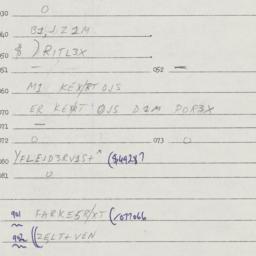 030 0
040 B1,J.Z1M.
$ ) RITL3X
050 —
051 — 052 —
060 M1 KEX/RT OJS
070 ER KEX/RT OJS D1M POR3X
071 —
072 0 073 0
080 YFLEID3RV1S+* ($4928?
081 0
901 FARKE5R/XT (-677066
902 ((ZELT+VEN